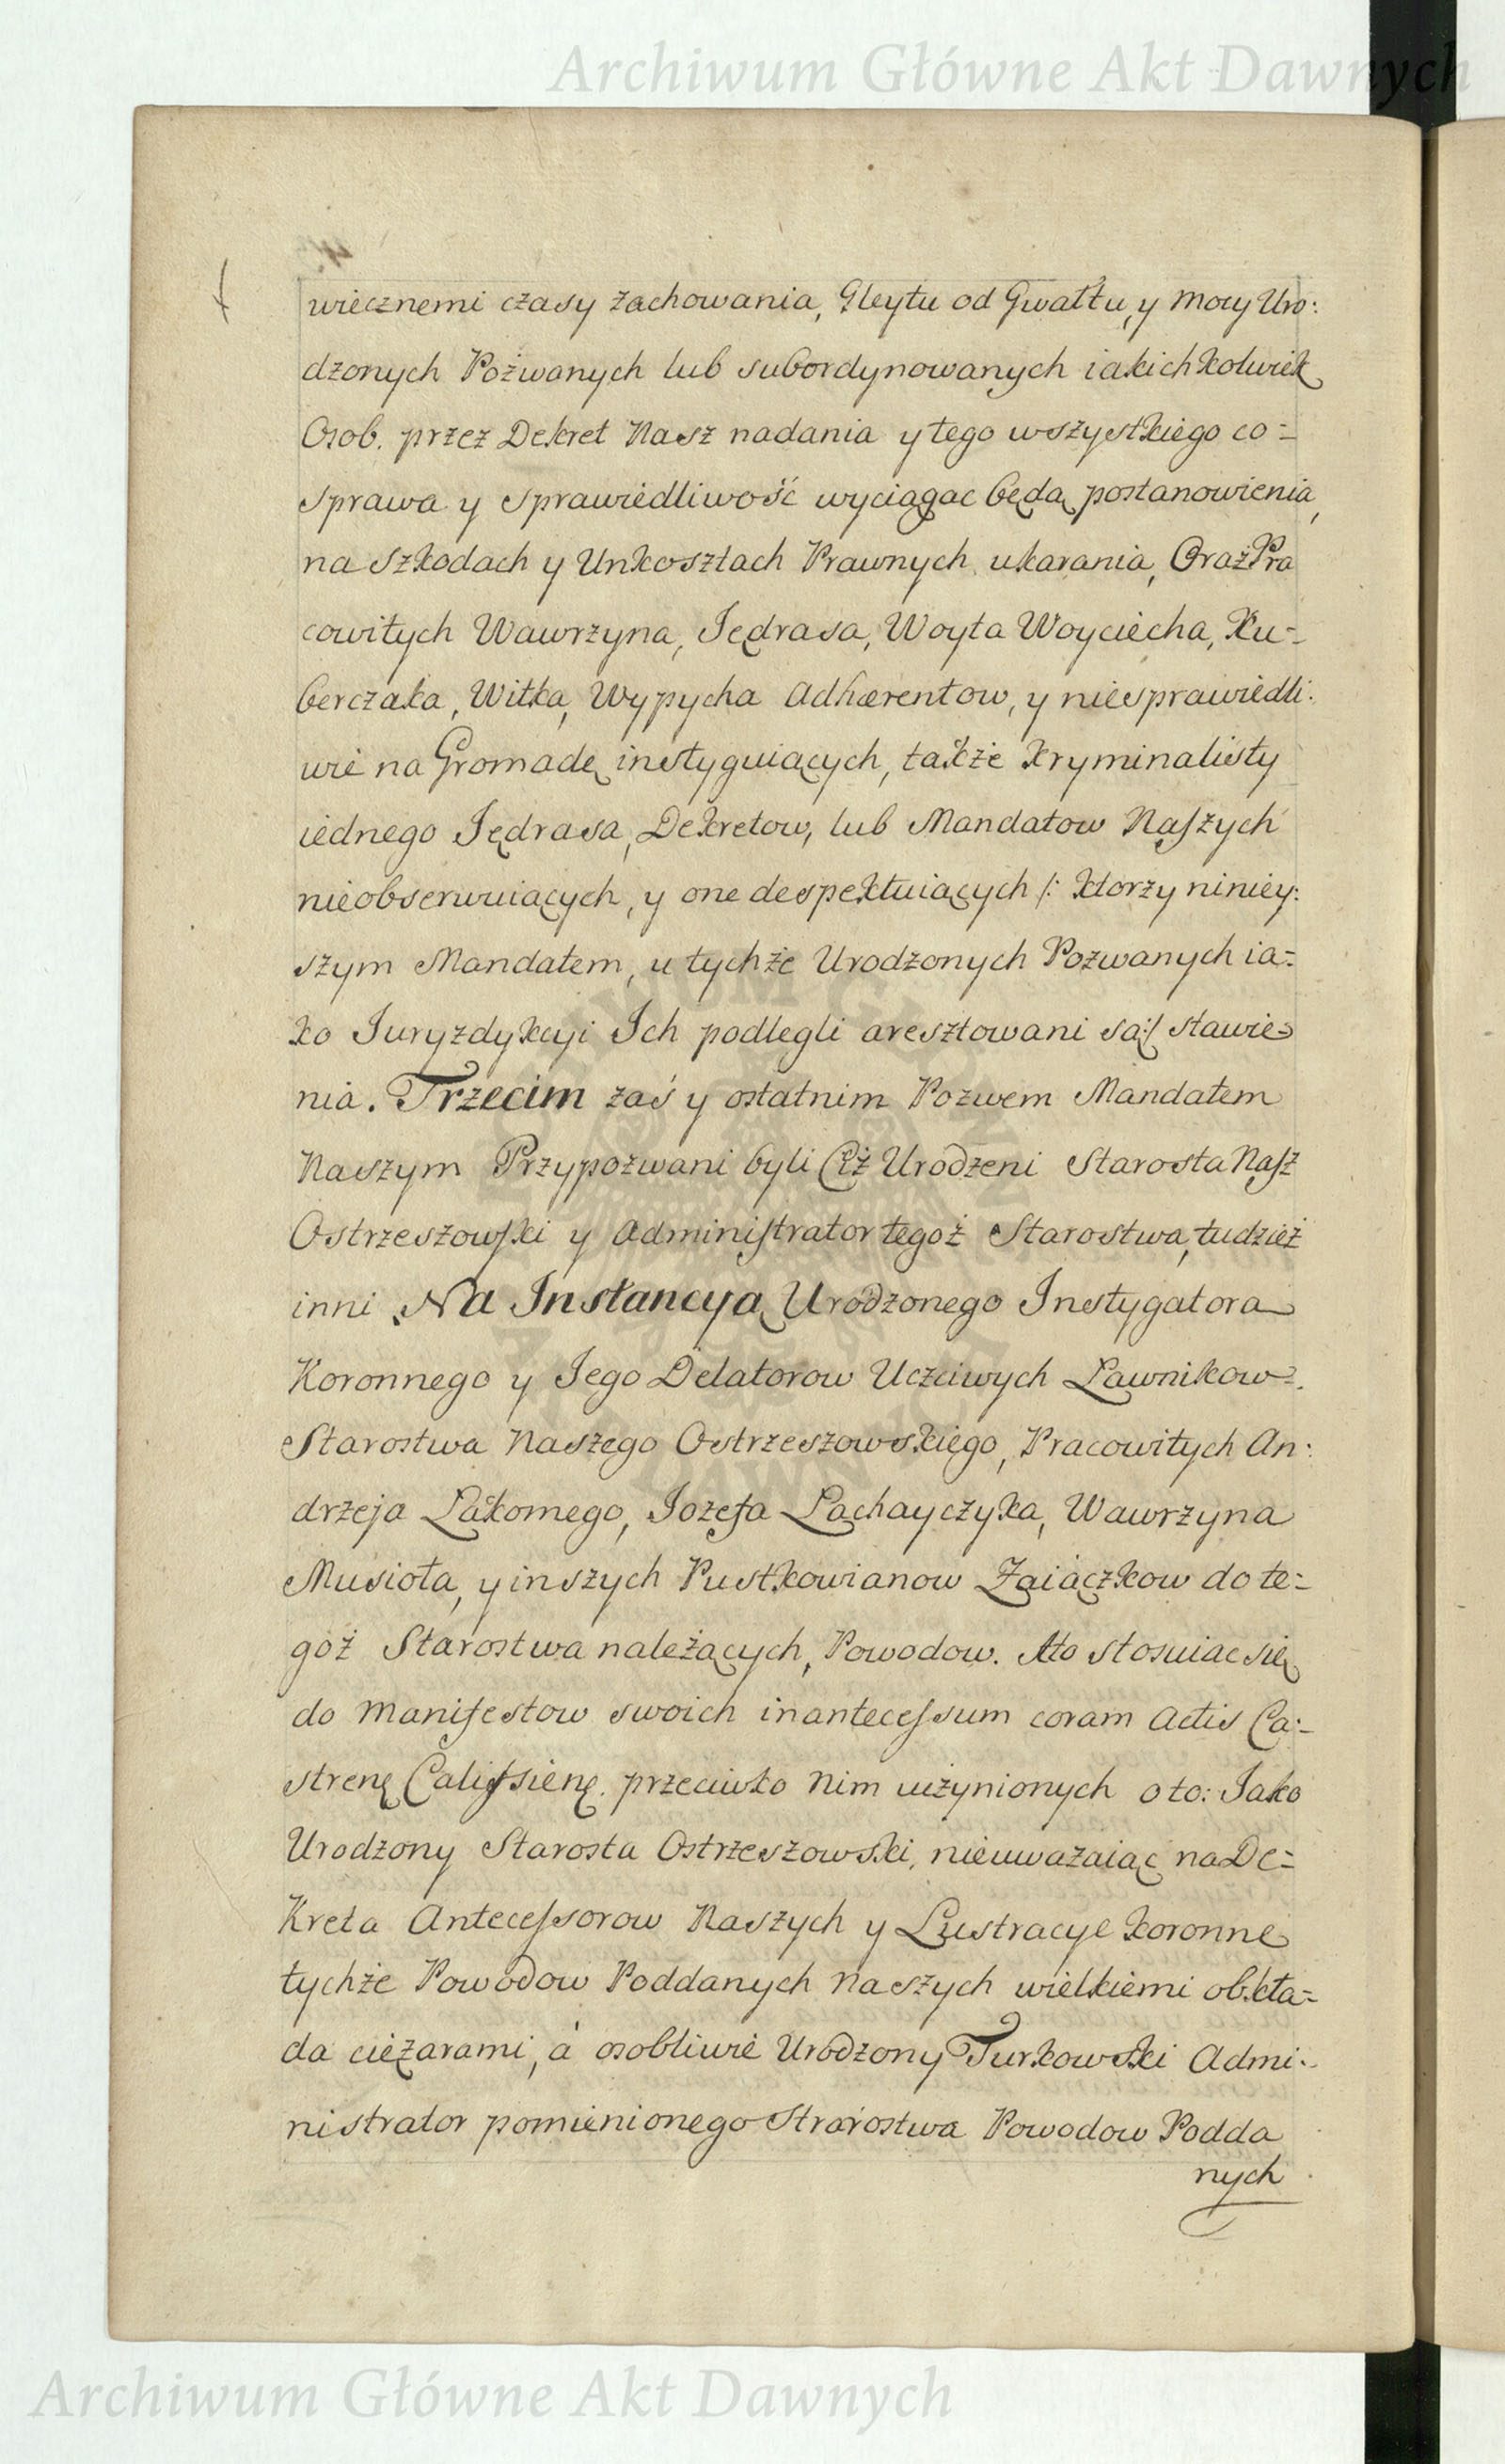 Archiwum Główne Akt Dawnych
wiecznemi czasy zachowania, Gleytu od Gwałtu, y mocy Uro:
dzonych Pozwanych lub subordynowanych iakichkolwiek
Osob. przez Dekret Nasz nadania y tego wszystkiego co=
sprawa y sprawiedliwość wyciągac będą postanowienia,
na szkodach y Unkosztach Prawnych ukarania, Oraz Pra
cowitych Wawrzyna, Jędrasa, Woyta Woyciecha, Ku=
berczaka, Witka, Wypycha Adhærentow, y niesprawiedli:
wie na Gromadę instyguiących, także kryminalisty
iednego Jędrasa, Dekretow, lub Mandatow Naszych
nieobserwuiących, y one despektuiących /: ktorzy niniey:
szym Mandatem, u tychże Urodzonych Pozwanych ia=
ko Juryzdykcyi Ich podlegli aresztowani są:/ stawie
nia. Trzecim zaś y ostatnim Pozwem Mandatem
Naszym Przypozwani byli Ciż Urodzeni Starosta Nasz
Ostrzeszowski y Administrator tegoż Starostwa, tudzież
inni Na Instancyą Urodzonego Instygatora
Koronnego y Jego Delatorow Uczciwych Ławnikow.
Starostwa Naszego Ostrzeszowskiego, Pracowitych An:
drzeja Łakomego, Jozefa Łachayczyka, Wawrzyna
Musioła, y inszych Pustkowianow Zaiączkow do te=
goż Starostwa należących, Powodow. Ato stosuiac się
do Manifestow swoich in antecessum coram Actis Ca:
strenę Calissienę. przeciwko nim uczynionych o to: Jako
Urodzony Starosta Ostrzeszowski, nieuważaiąc na De=
kreta Antecessorow Naszych y Lustracye koronne
tychże Powodow Poddanych naszych wielkiemi obkła=
da ciężarami, à osobliwie Urodzony Turkowski Admi:
nistrator pomienionego Strarostwa Powodow Podda
nych
Archiwum Główne Akt Dawnych